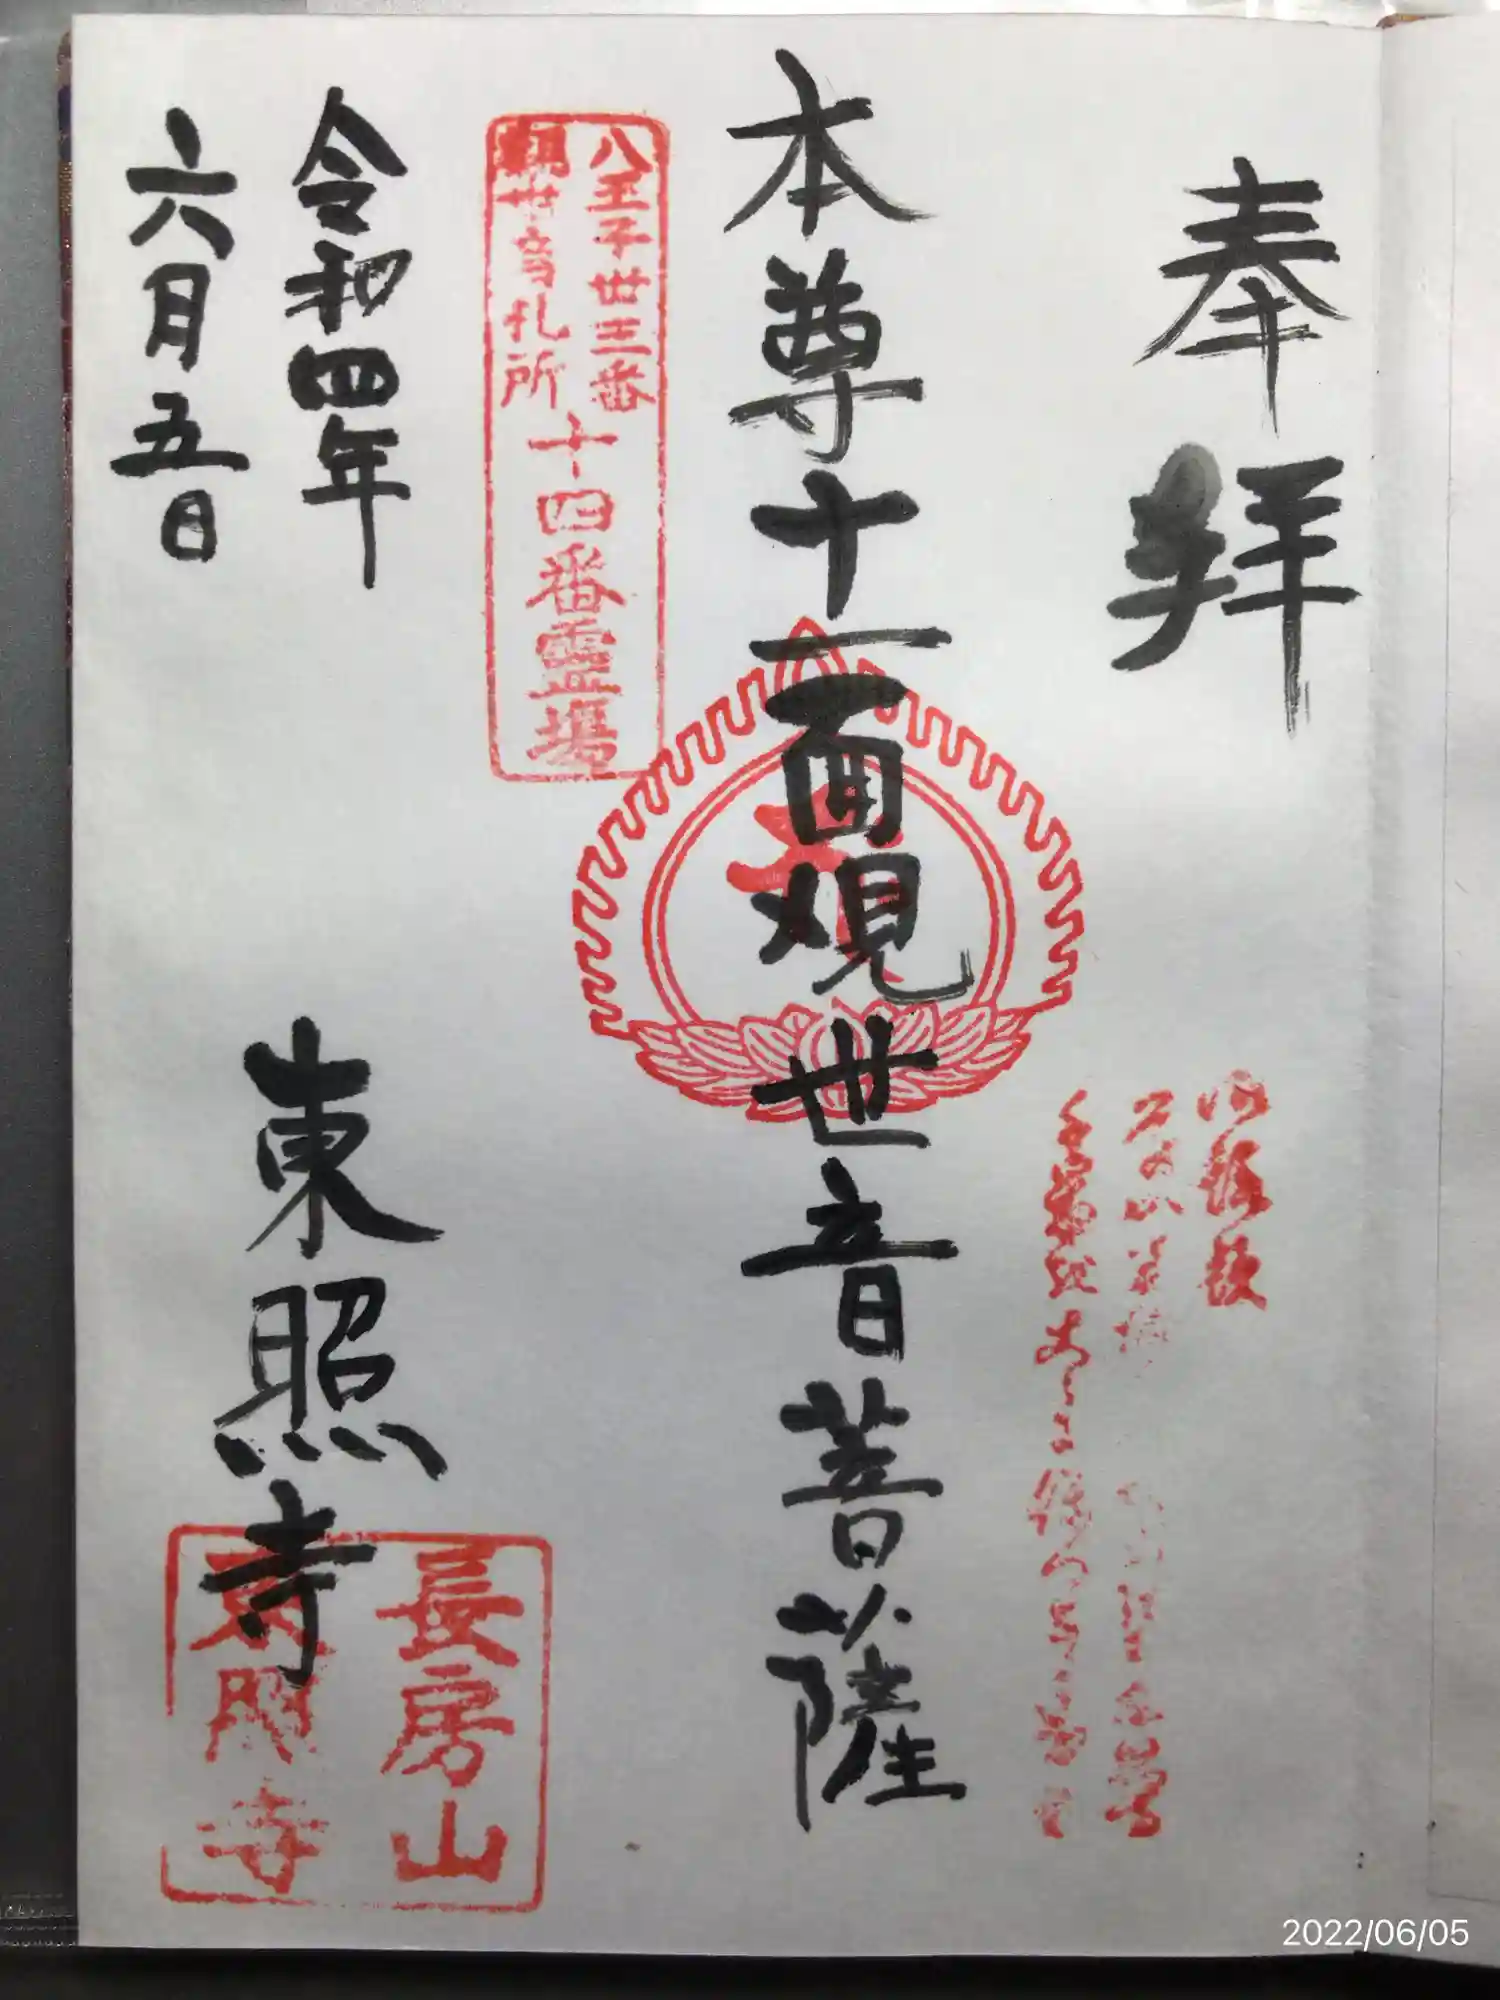 奉拝
本尊十一面観世音菩薩
八王子丗三番
観世音札所
十四番霊場
令和四年
六月五日
東照寺
長房山
東照寺
2022/06/05